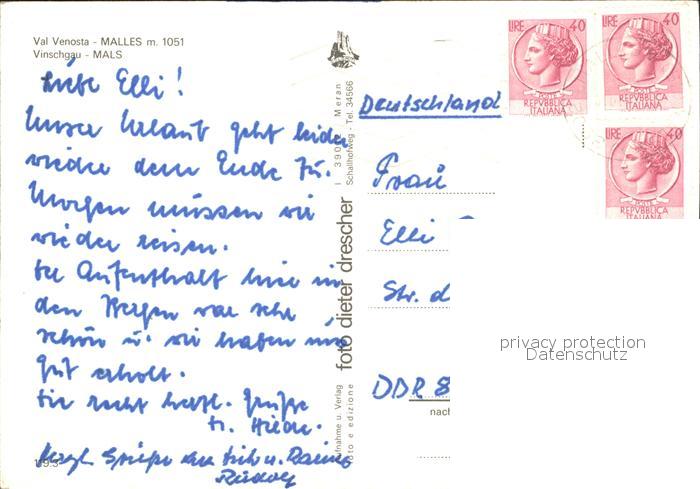 Val Venosta - MALLES m. 1051
Vinschgau - MALS
Liebe Elli!
Unser Urlaub geht leider
wieder dem Ende zu.
Morgen müssen wir
wieder reisen.
Der Aufenthalt hier in
den Bergen war sehr
schön u. wir haben uns
gut erholt.
Dir recht herzl. Grüße
Hilde.
Herzl. Grüße
Rudolf
119.3
foto dieter drescher
I 39012 Meran
Schallhofweg - Tel. 34566
Aufnahme u. Verlag
foto e edizione
LIRE 40
POSTE
REPVBBLICA
ITALIANA
LIRE 40
POSTE
REPVBBLICA
ITALIANA
LIRE 40
POSTE
REPVBBLICA
ITALIANA
Deutschland
Frau
Elli
Str. d
DDR 8
nach
privacy protection
Datenschutz